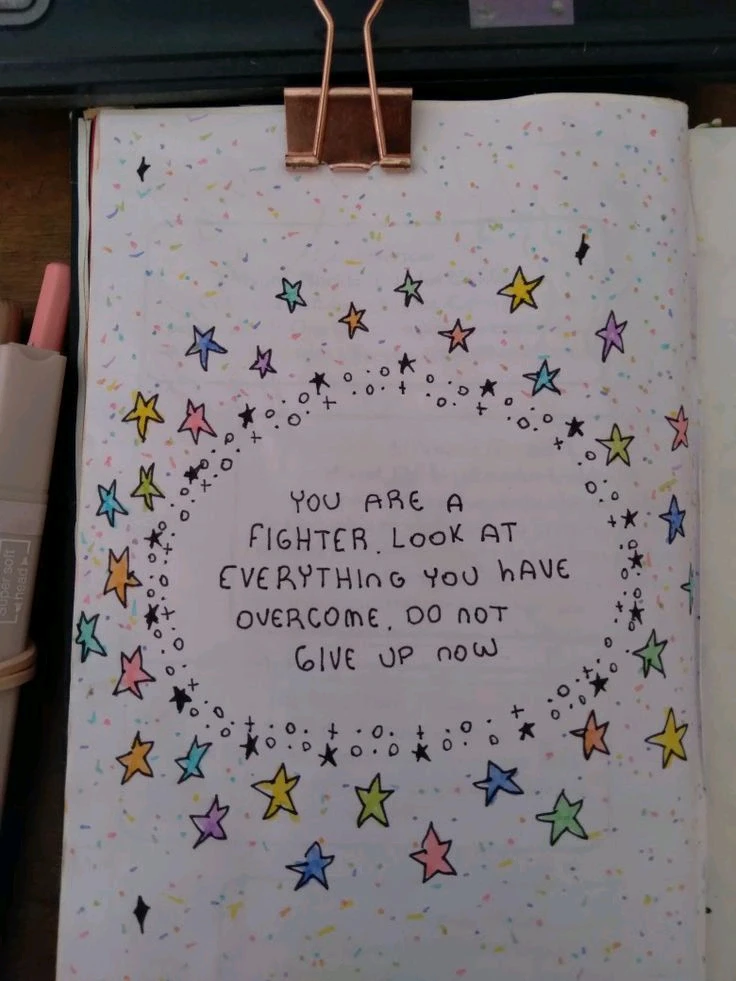 YOU ARE A
FIGHTER. LOOK AT
EVERYTHInG YOU hAVE
OVERCOmE. DO nOT
GIVE UP nOW
super soft
head